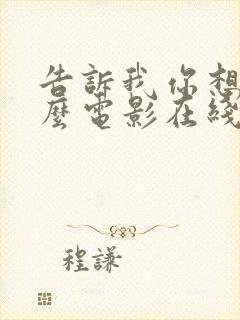 告訴我 你想
麼電影在綫
程謙